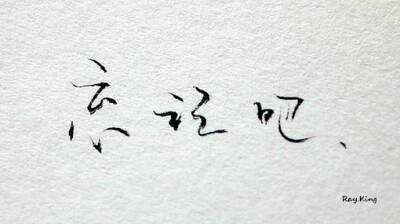 忘记吧、
Ray.King